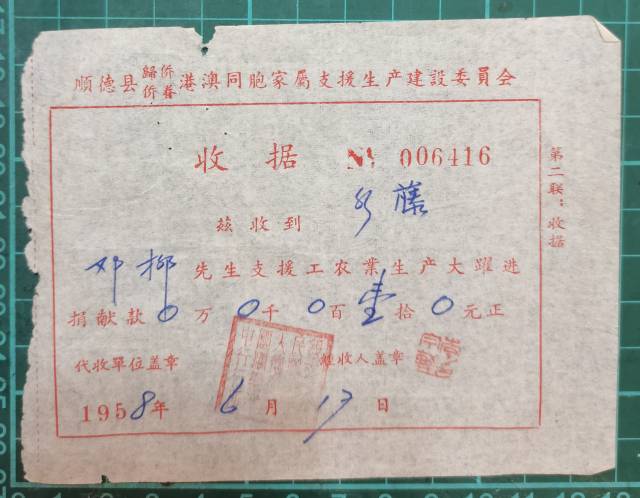 顺德县归侨侨眷港澳同胞家属支援生产建設委員会
收据 № 006416
兹收到
邓柳先生支援工农業生产大躍进
捐献款0万0千0百壹拾0元正
代收單位盖章 經收人盖章
1958年6月17日
第二联：收据